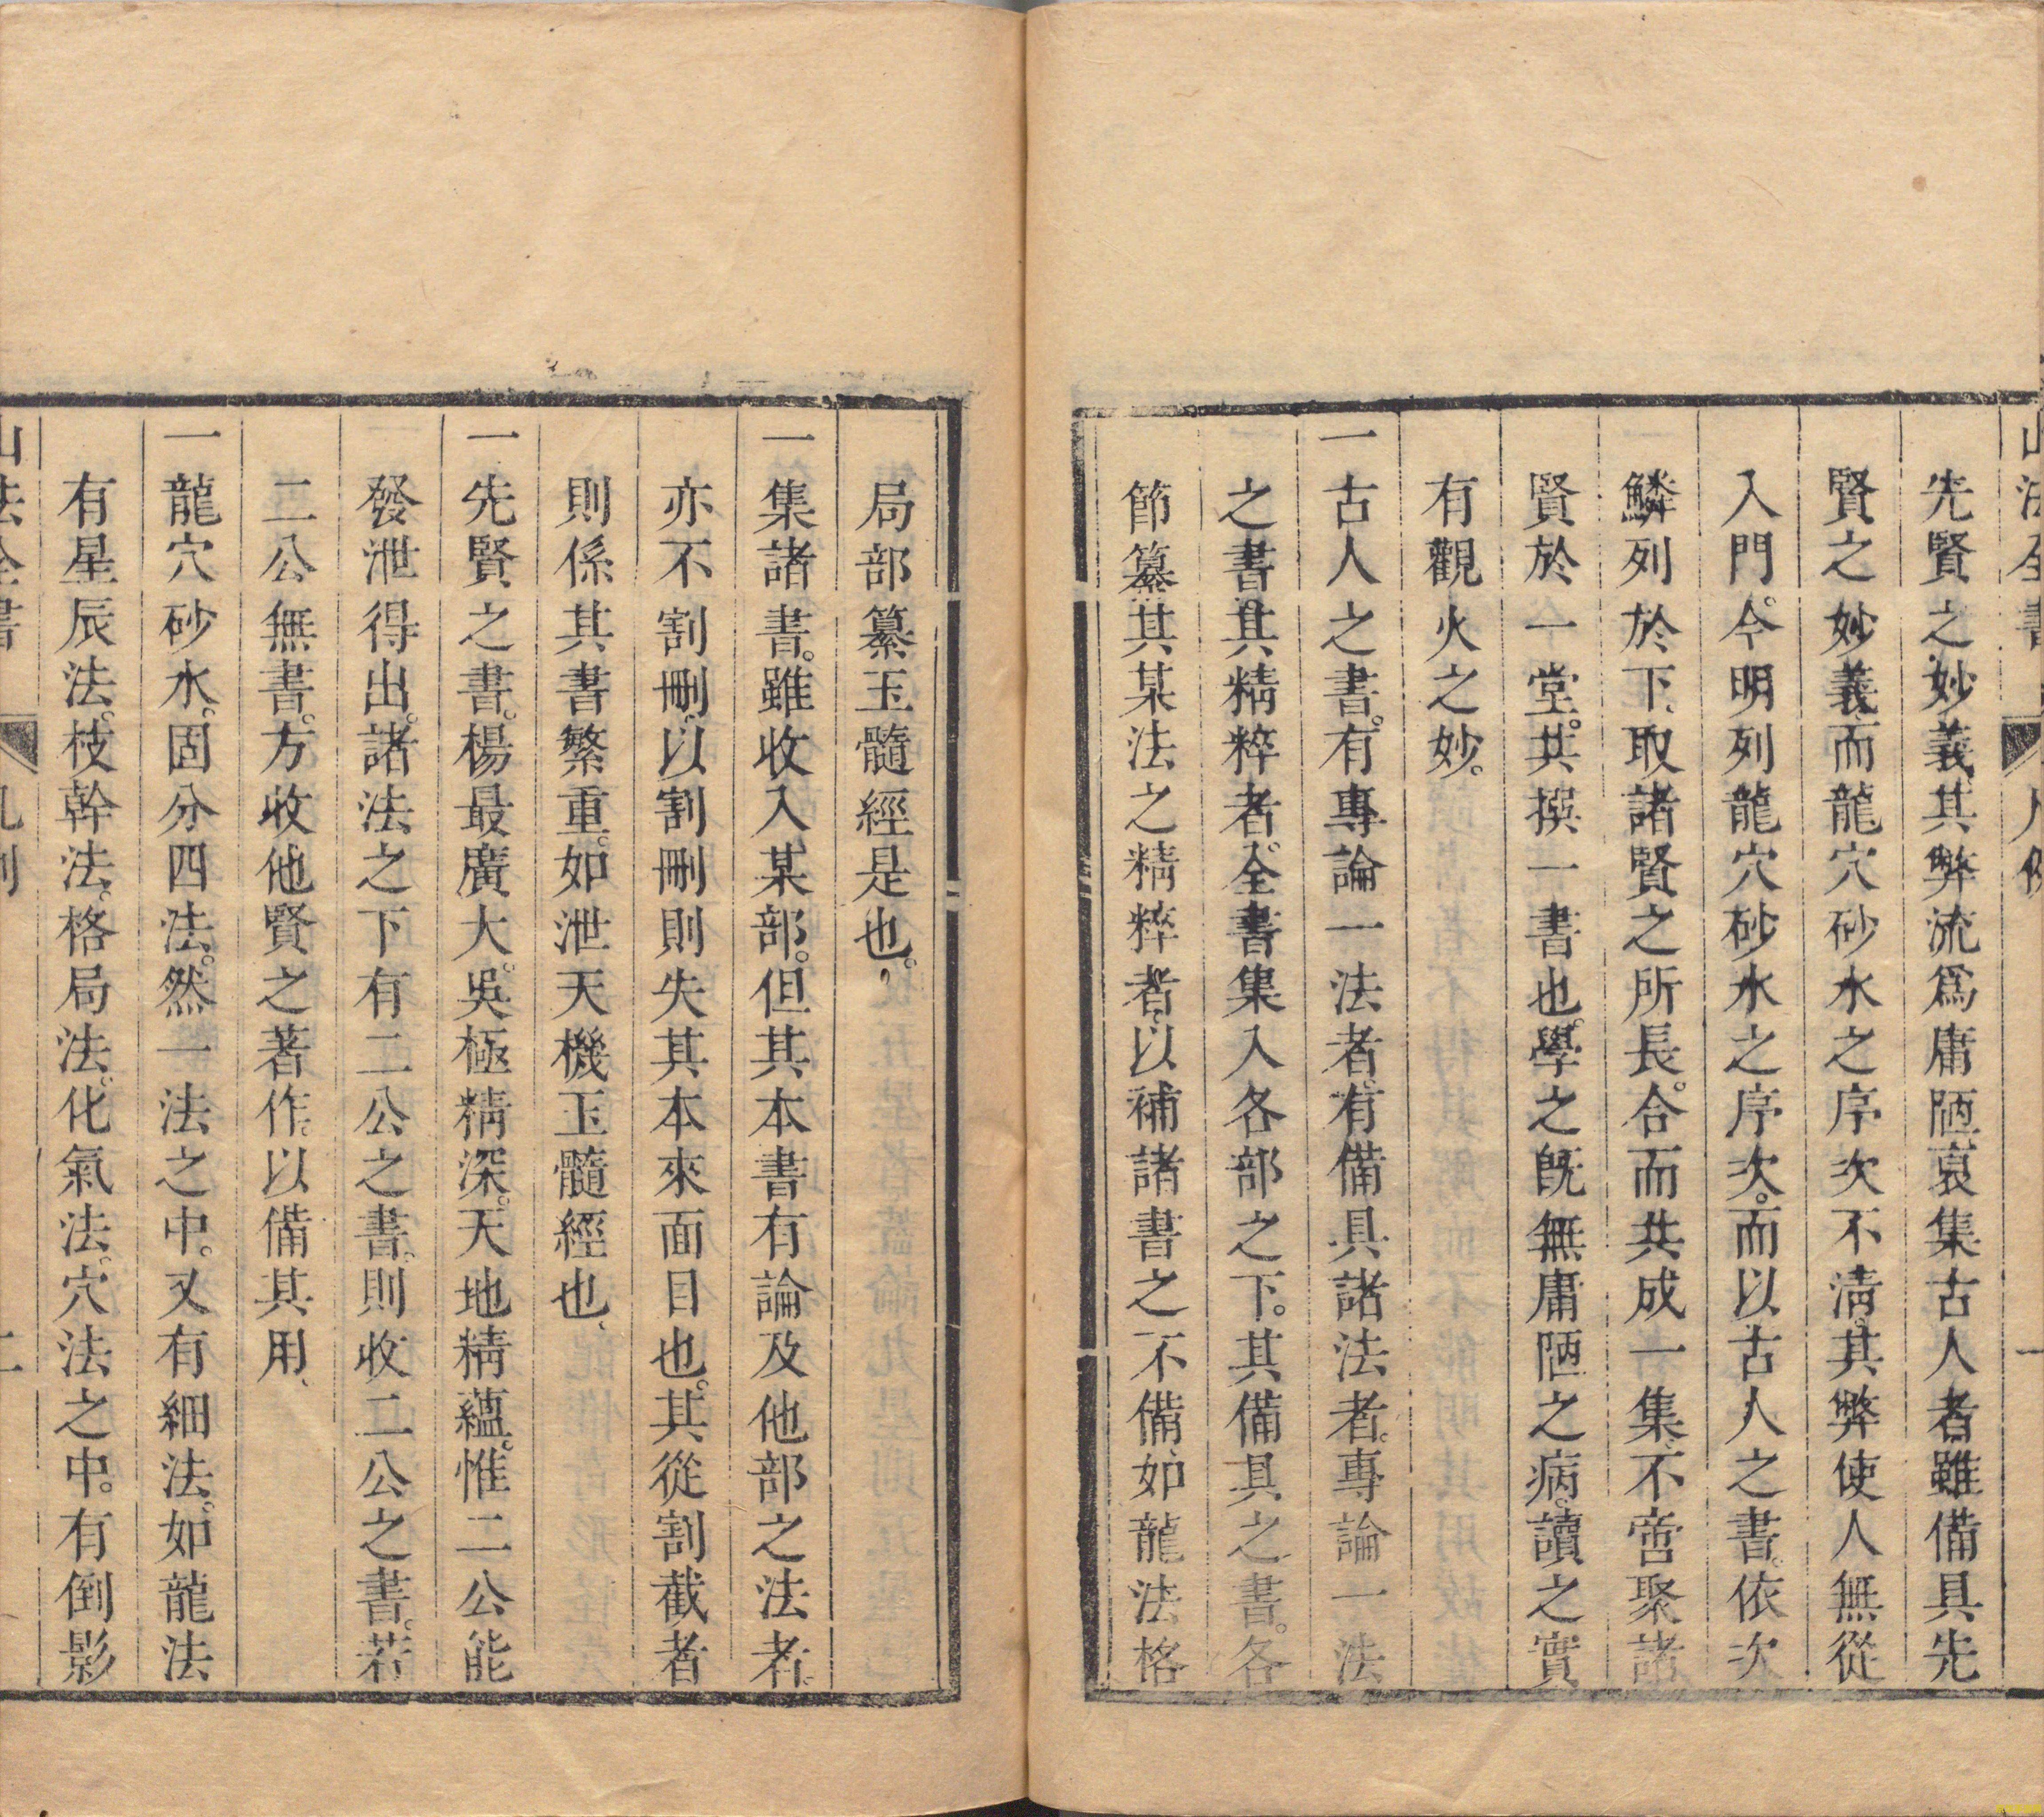 山法全書 凡例 一
先賢之妙義其弊流爲庸陋裒集古人者雖備具先
賢之妙義而龍穴砂水之序次不淸其弊使人無從
入門今明列龍穴砂水之序次而以古人之書依次
鱗列於下取諸賢之所長合而共成一集不啻聚諸
賢於一堂共撰一書也學之旣無庸陋之病讀之實
有觀火之妙
一古人之書有專論一法者有備具諸法者專論一法
之書其精粹者全書集入各部之下其備具之書各
節纂其某法之精粹者以補諸書之不備如龍法格
局部纂玉髓經是也
一集諸書雖收入某部但其本書有論及他部之法者
亦不割刪以割刪則失其本來面目也其從割截者
則係其書繁重如泄天機玉髓經也
一先賢之書楊最廣大吳極精深天地精蘊惟二公能
發泄得出諸法之下有二公之書則收二公之書若
二公無書方收他賢之著作以備其用
一龍穴砂水固分四法然一法之中又有細法如龍法
有星辰法枝幹法格局法化氣法穴法之中有倒影
山法全書 凡例 二